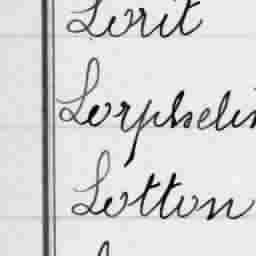 Lorit
Lorphelin
Lotton